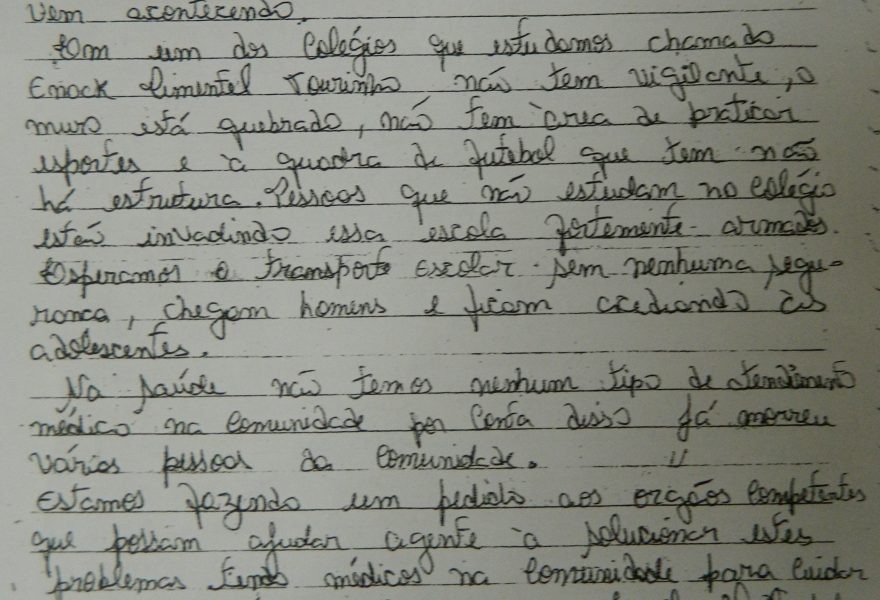 vem acontecendo.
Em um dos Colégios que estudamos chamado
Enock Pimentel Tourinho não tem vigilante, o
muro está quebrado, não tem àrea de praticar
esportes e à quadra de futebol que tem não
há estrutura. Pessoas que não estudam no colégio
estão invadindo essa escola fortemente armados.
Esperamos o transporte Escolar sem nenhuma segu-
ranca, chegam homens e ficam acediando às
adolescentes.
Na saúde não temos nenhum tipo de atendimento
médico na Comunidade por Conta disso já morreu
várias pessoas da Comunidade.
Estamos fazendo um pedido aos orgãos Competentes
que possam ajudar agente à solucionar estes
problemas tendo médicos na Comunidade para Cuidar